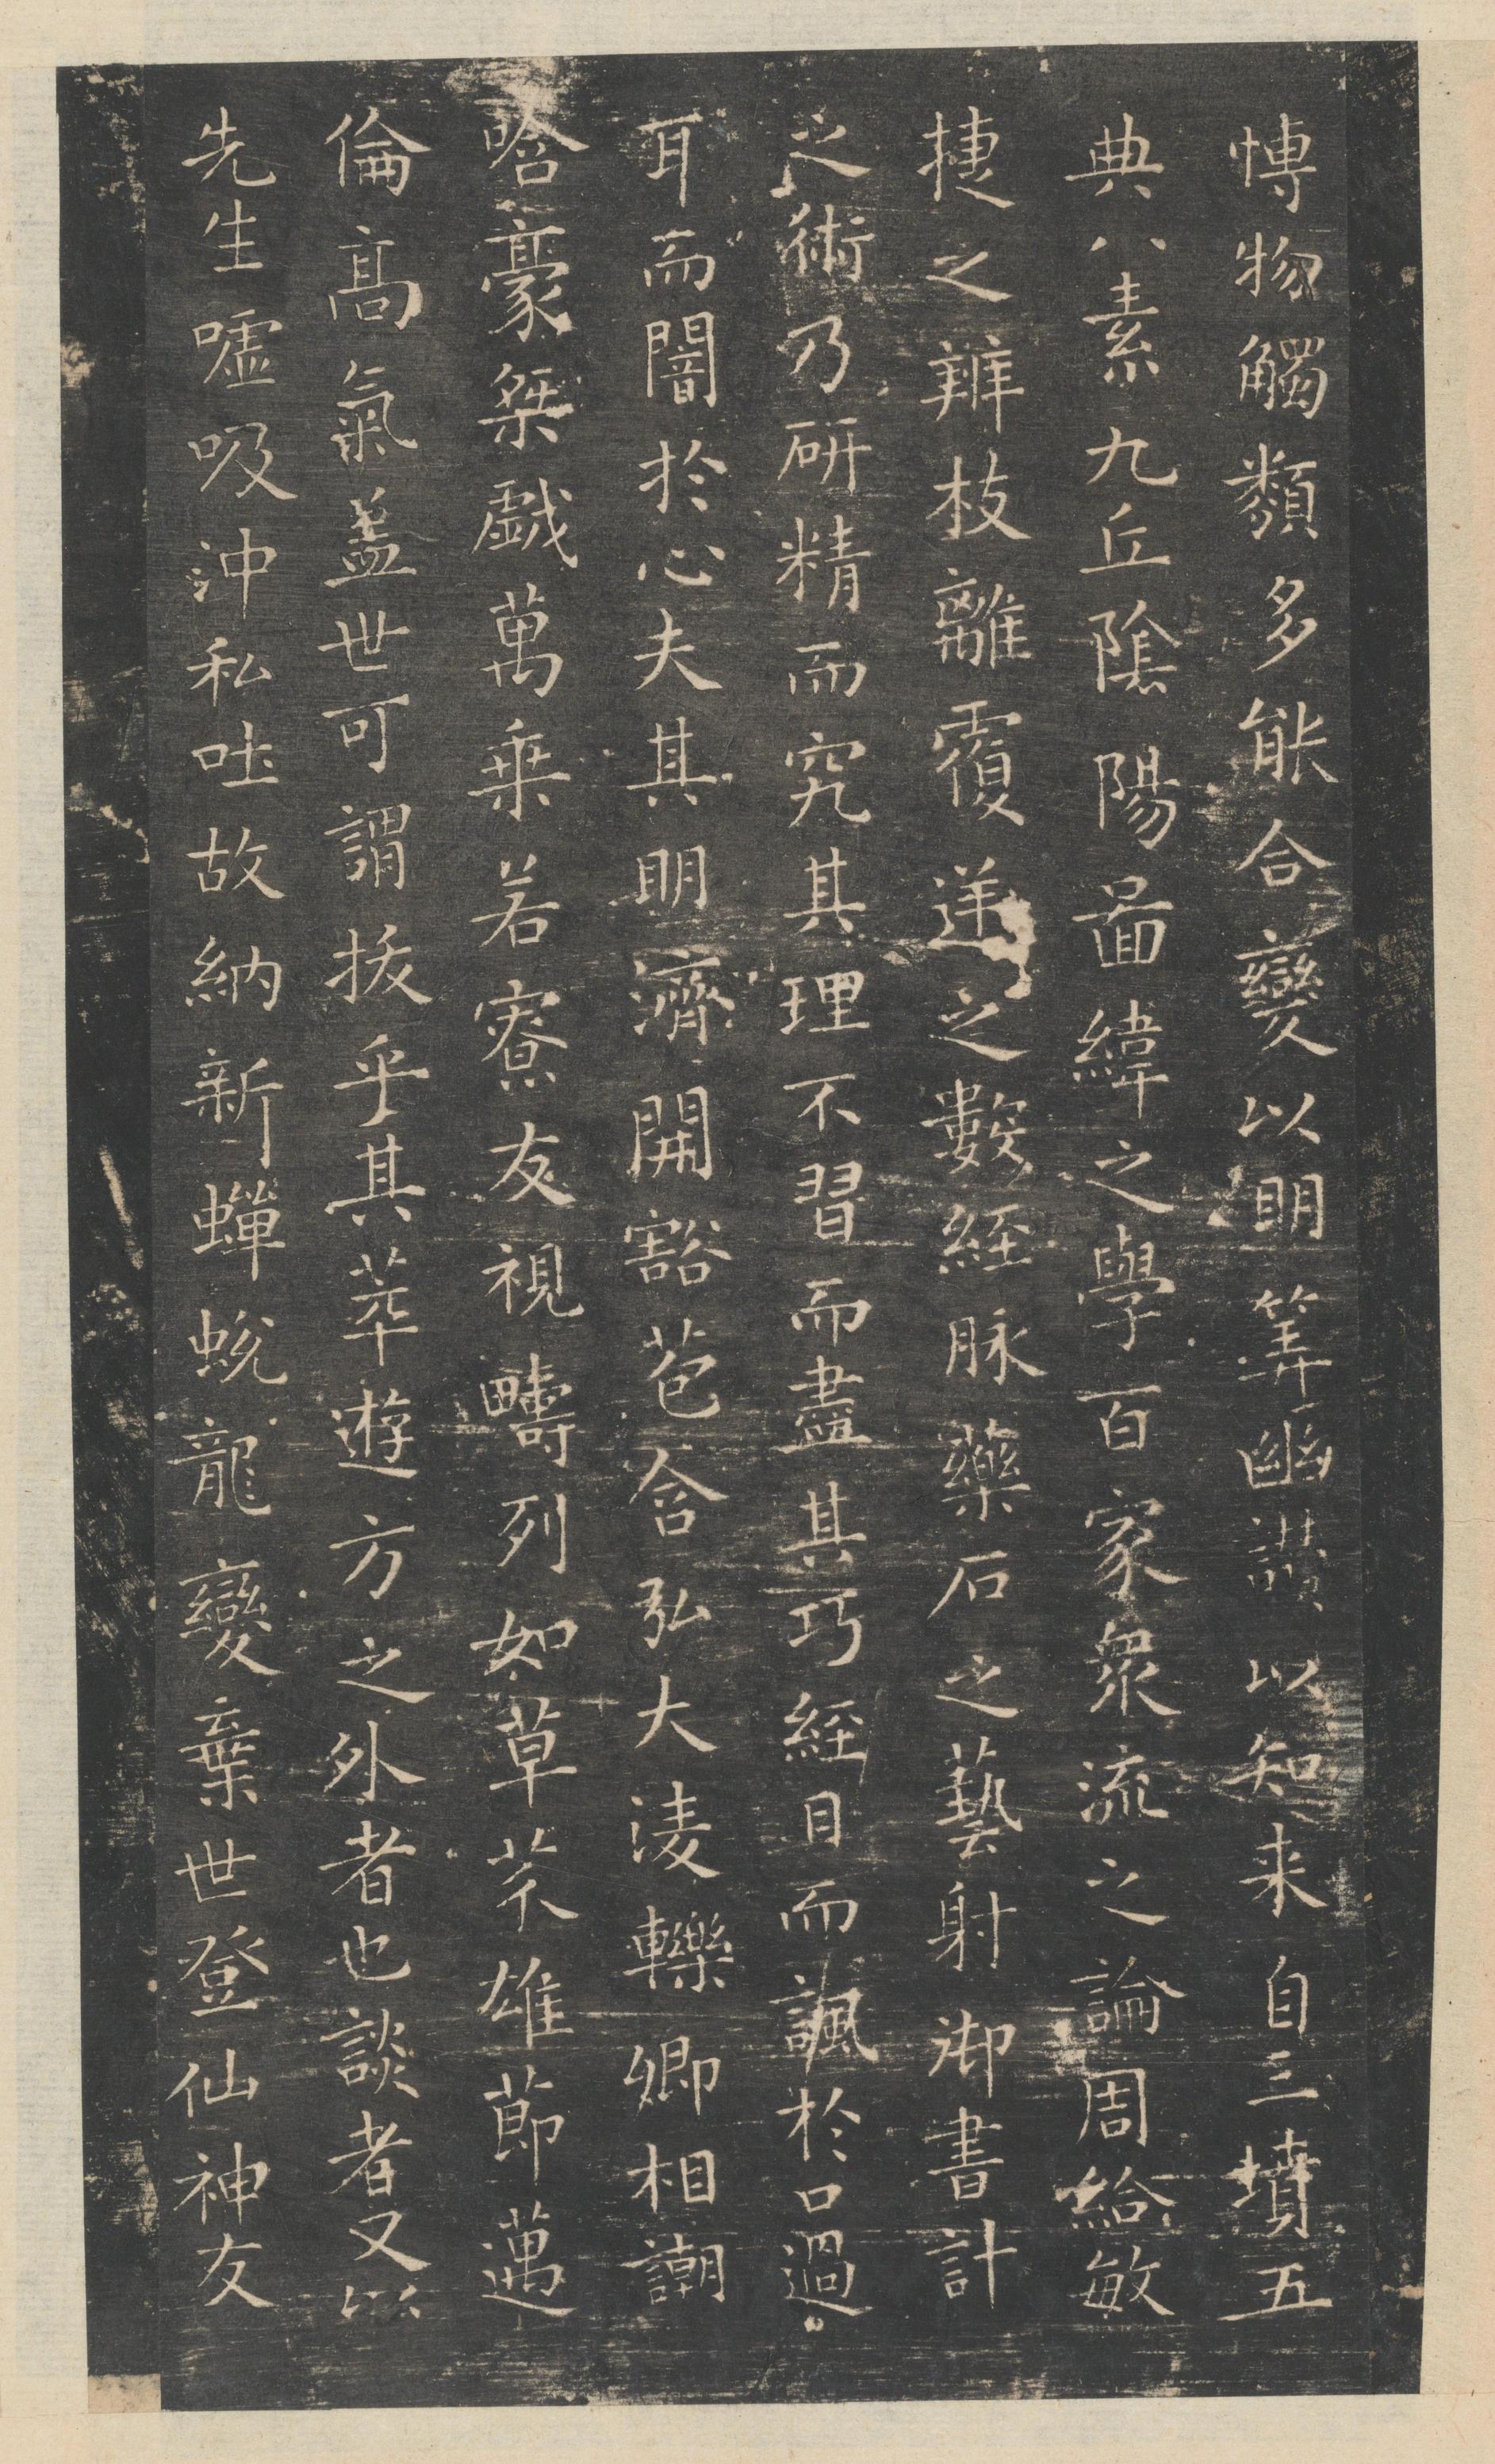 愽物觸類多能合變以明筭幽讃以知来自三墳五
典八素九丘陰陽啚緯之學百家衆流之論周給敏
捷之辨枝離覆逆之數經脉藥石之藝射御書計
之術乃研精而究其理不習而盡其巧經目而諷於口過
耳而闇於心夫其明濟開豁苞含弘大淩轢卿相謿
哈豪桀戯萬乗若寮友視疇列如草芥雄節邁
倫髙氣盖世可謂拔乎其萃遊方之外者也談者又以
先生嘘吸沖私吐故納新蟬蛻龍變棄世登仙神友